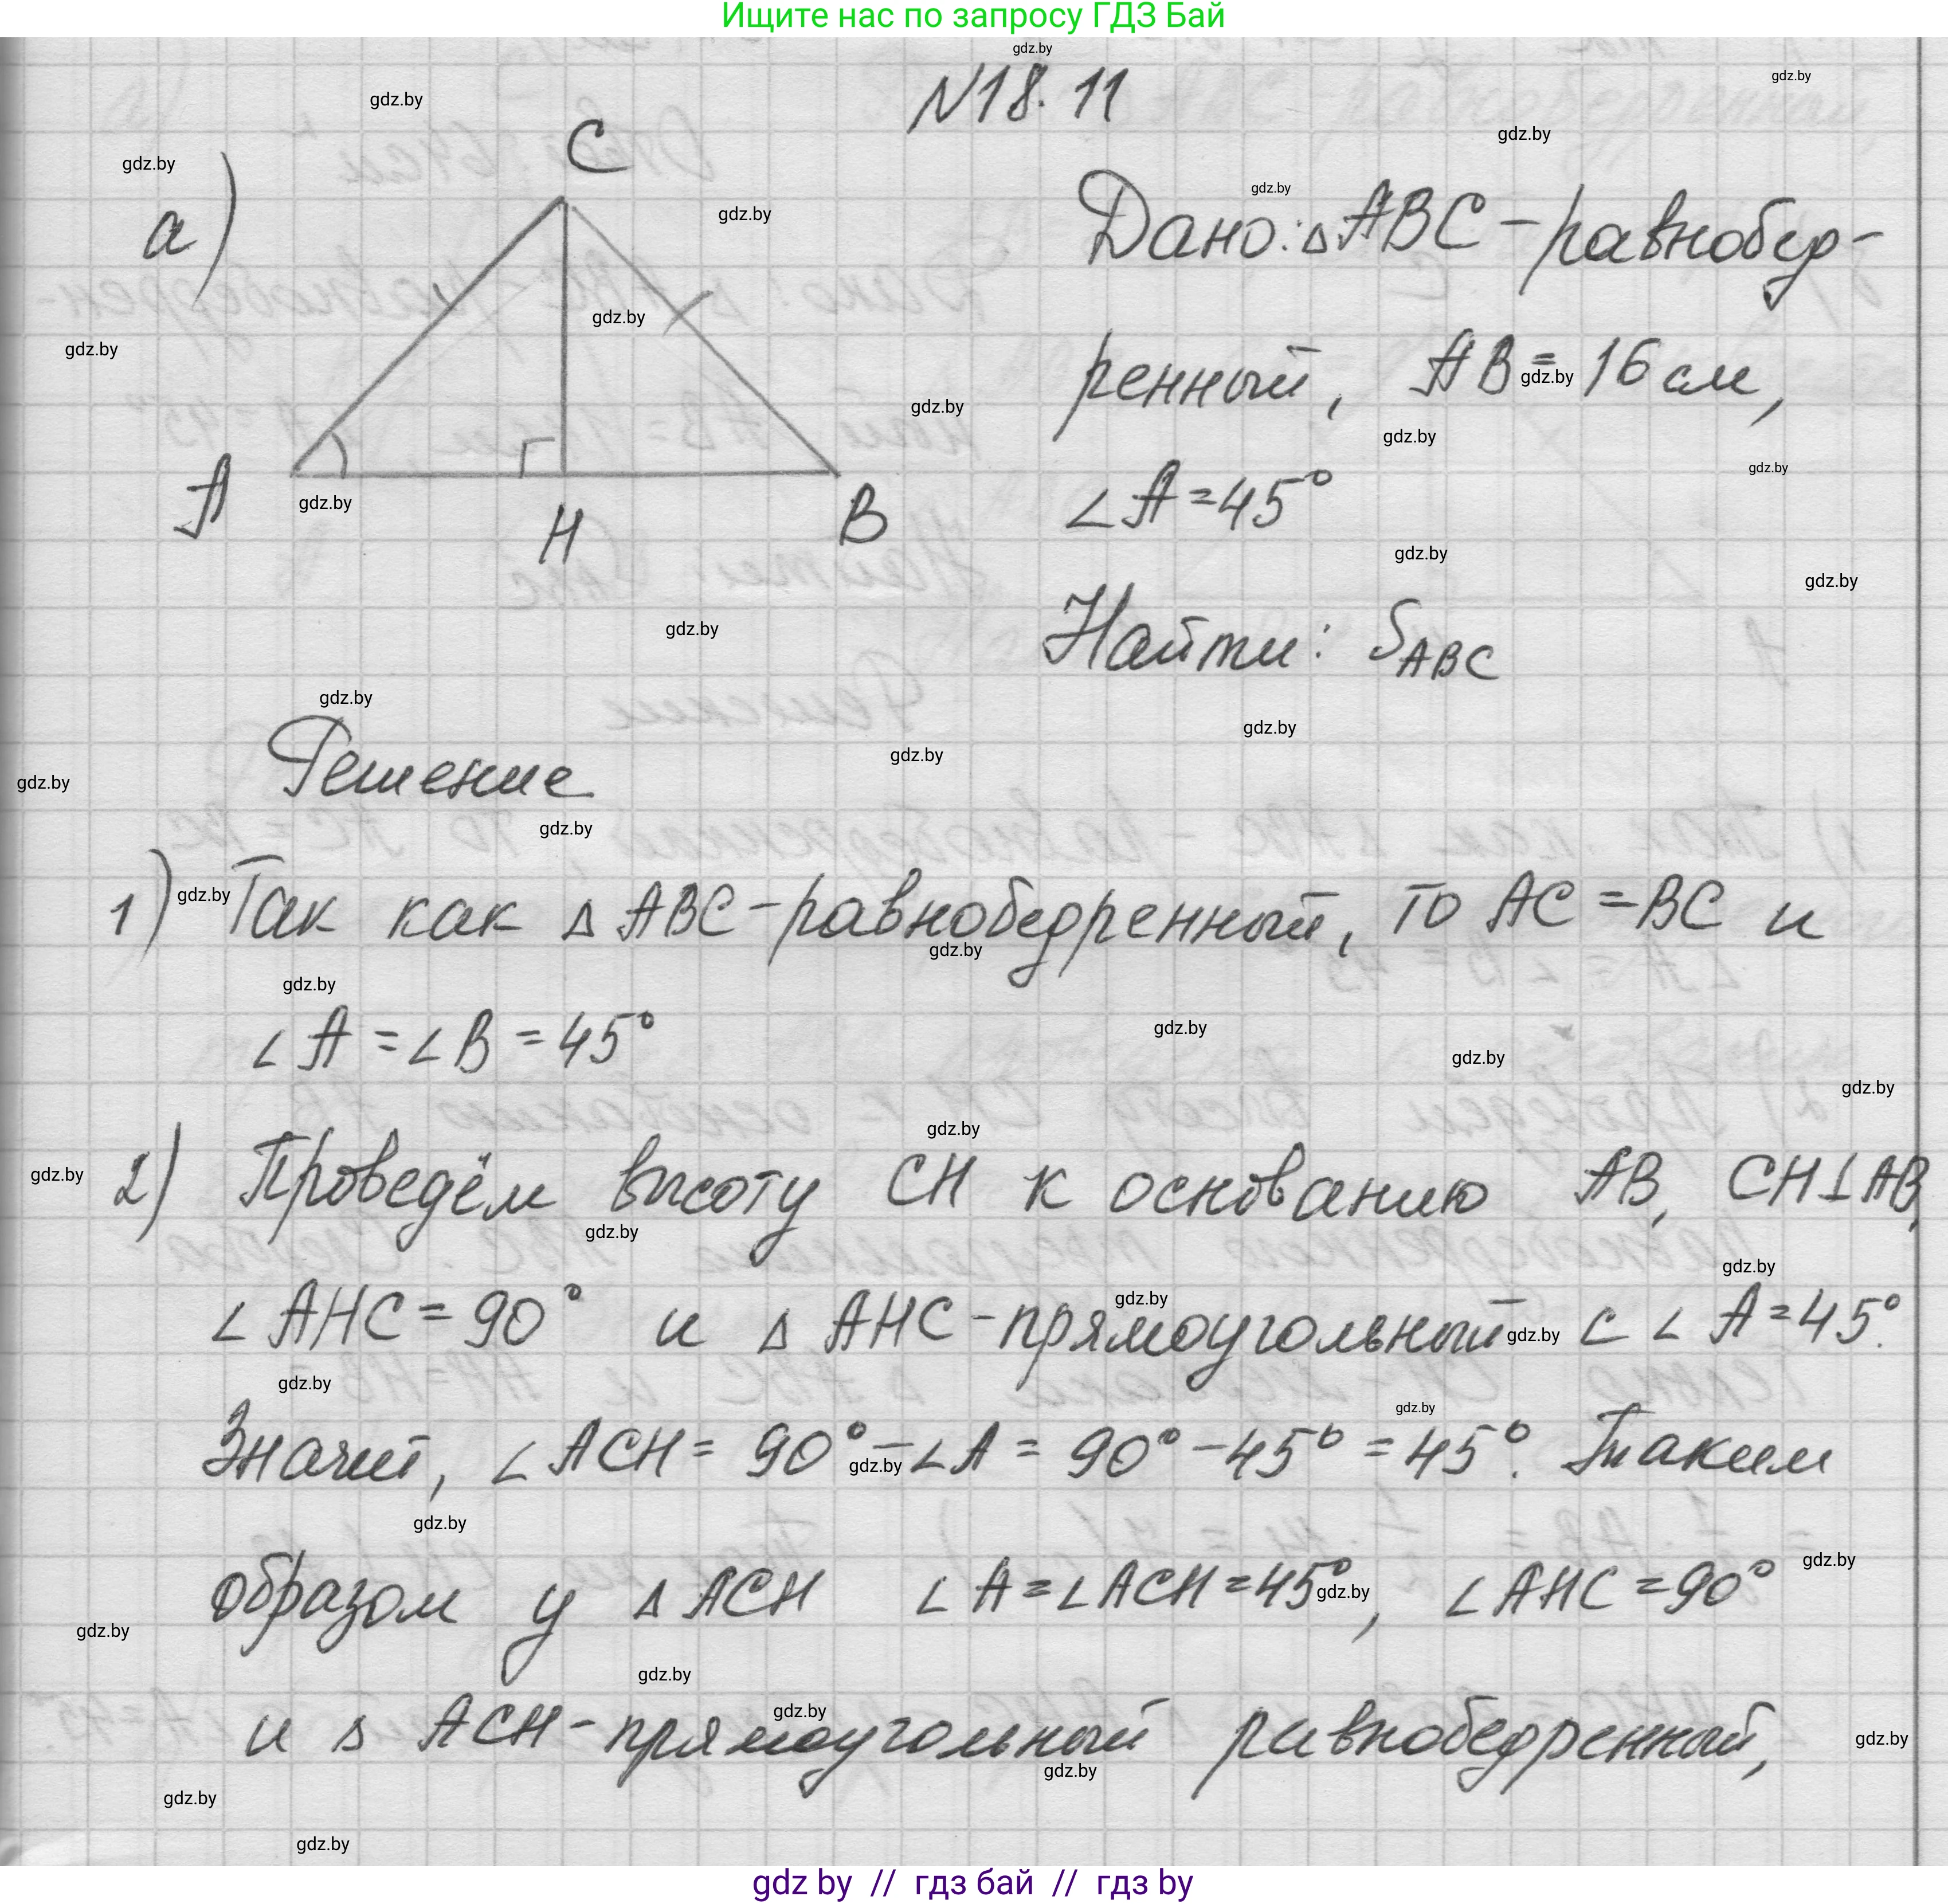 Ищите нас по запросу ГДЗ Бай
N18.11
а)
C
A
H
B
Дано: △ABC - равнобер-
ренный, AB = 16 см,
∠A = 45°
Найти: S_ABC
Решение
1) Так как △ABC - равнобедренный, то AC = BC и
∠A = ∠B = 45°
2) Проведём высоту CH к основанию AB, CH⊥AB,
∠AHC = 90° и △AHC - прямоугольный с ∠A = 45°.
Значит, ∠ACH = 90° - ∠A = 90° - 45° = 45°. Таким
образом у △ACH ∠A = ∠ACH = 45°, ∠AHC = 90°
и △ACH - прямоугольный равнобедренный,
gdz by // гдз бай // гдз by